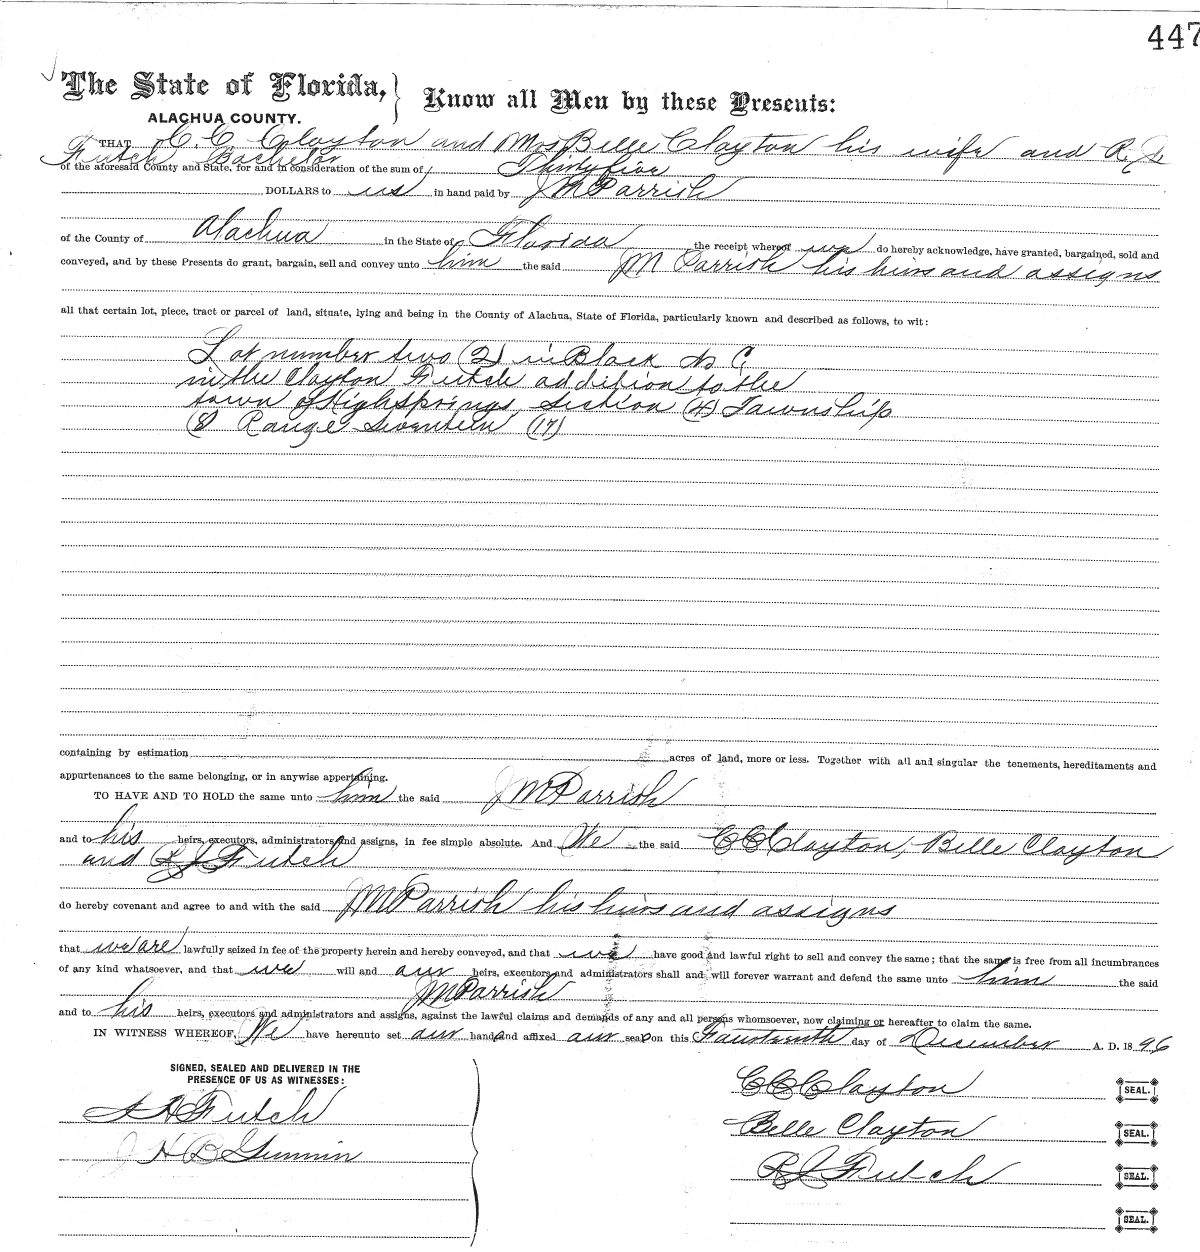 447
The State of Florida, } Know all Men by these Presents:
ALACHUA COUNTY.
THAT C. C. Clayton and Mrs Belle Clayton his wife and R J
Futch Bachelor
of the aforesaid County and State, for and in consideration of the sum of Thirty five
DOLLARS to us in hand paid by J M Parrish
of the County of Alachua in the State of Florida the receipt whereof we do hereby acknowledge, have granted, bargained, sold and
conveyed, and by these Presents do grant, bargain, sell and convey unto him the said J M Parrish his heirs and assigns
all that certain lot, piece, tract or parcel of land, situate, lying and being in the County of Alachua, State of Florida, particularly known and described as follows, to wit:
Lot number two (2) in Block No C
in the Clayton Futch addition to the
town of High Springs Section (4) Township
(8 Range Seventeen (17)
containing by estimation acres of land, more or less. Together with all and singular the tenements, hereditaments and
appurtenances to the same belonging, or in anywise appertaining.
TO HAVE AND TO HOLD the same unto him the said J M Parrish
and to his heirs, executors, administrators and assigns, in fee simple absolute. And We the said C C Clayton, Belle Clayton
and R J Futch
do hereby covenant and agree to and with the said J M Parrish his heirs and assigns
that we are lawfully seized in fee of the property herein and hereby conveyed, and that we have good and lawful right to sell and convey the same; that the same is free from all incumbrances
of any kind whatsoever, and that we will and our heirs, executors and administrators shall and will forever warrant and defend the same unto him the said
J M Parrish
and to his heirs, executors and administrators and assigns, against the lawful claims and demands of any and all persons whomsoever, now claiming or hereafter to claim the same.
IN WITNESS WHEREOF, We have hereunto set our hands and affixed our seals on this Fourteenth day of December A. D. 1896
SIGNED, SEALED AND DELIVERED IN THE
PRESENCE OF US AS WITNESSES:
C C Clayton SEAL.
Futch
Belle Clayton SEAL.
J H B
R J Futch SEAL.
SEAL.